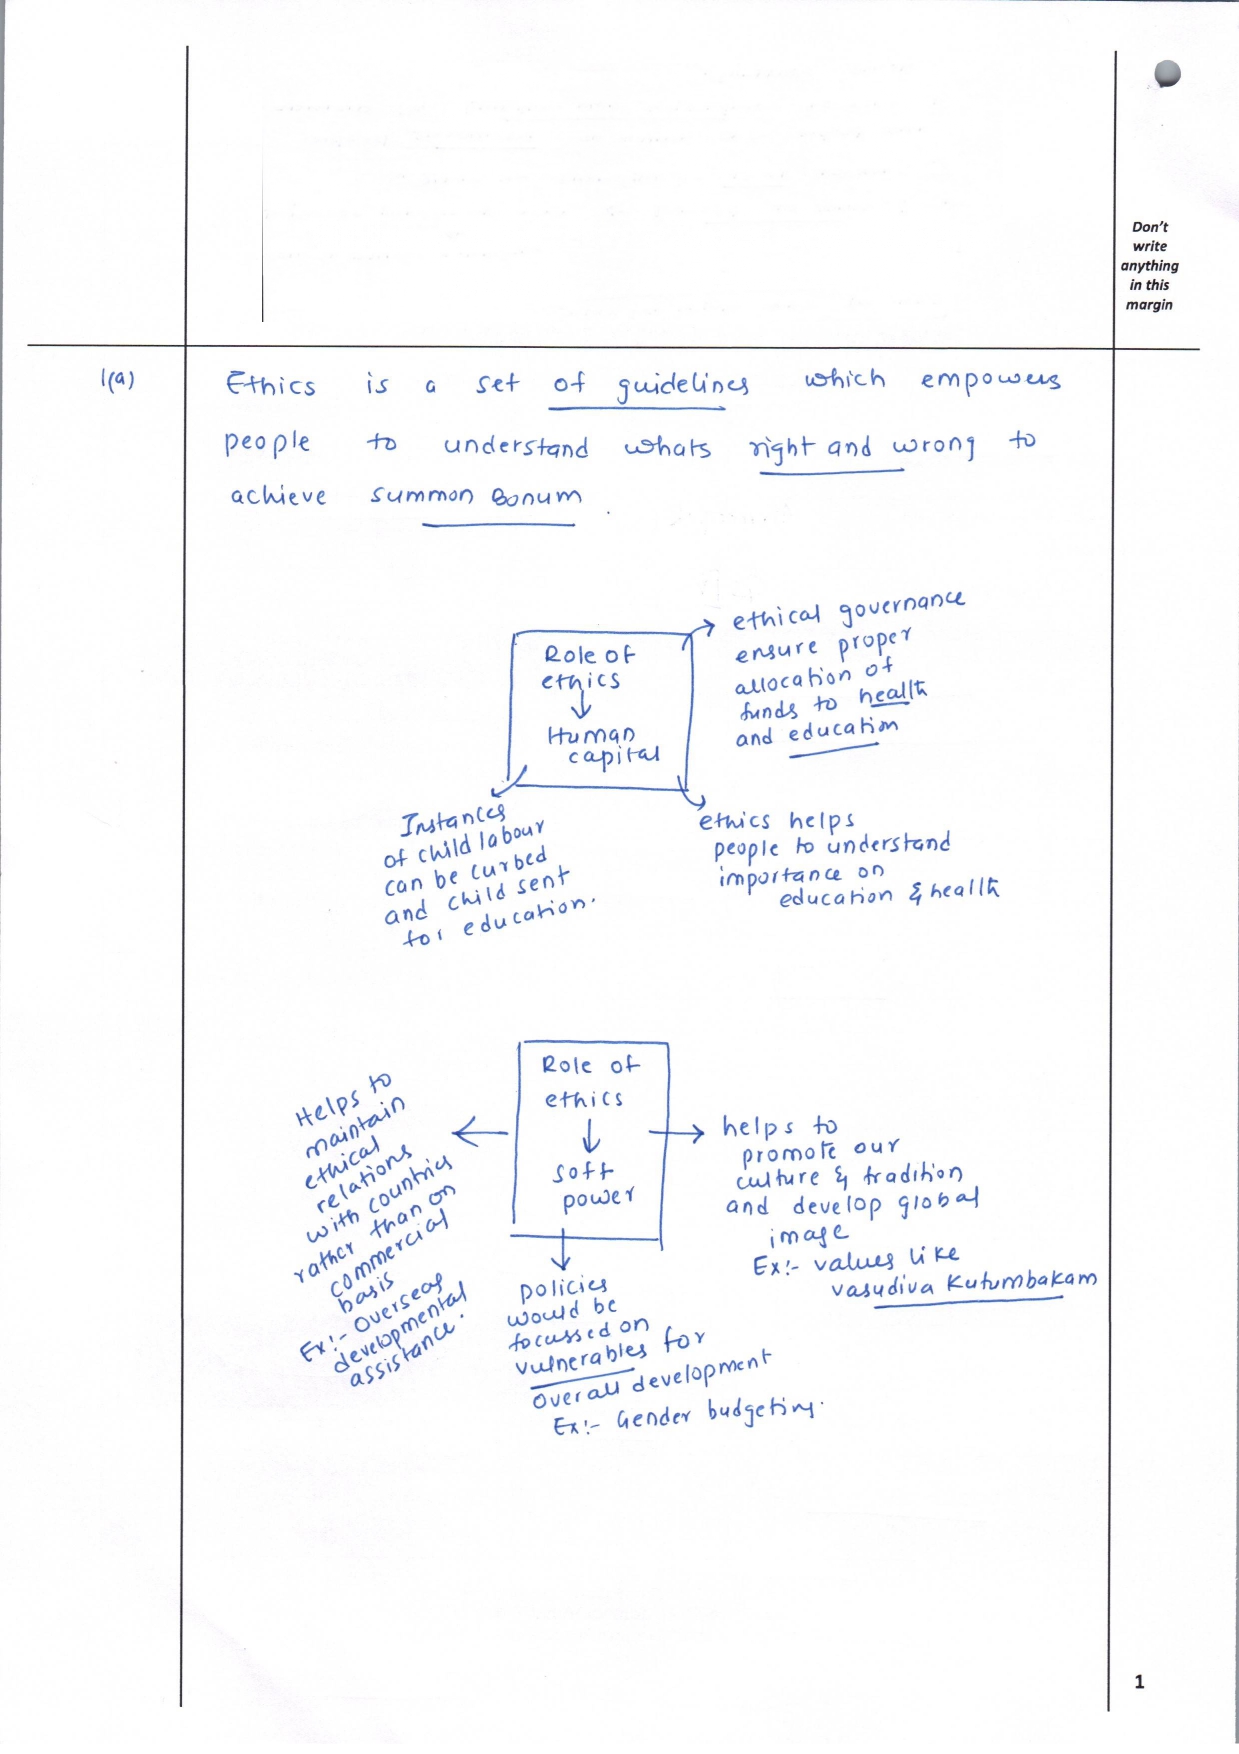 Don't
write
anything
in this
margin
1(a)
Ethics is a set of guidelines which empowers
people to understand whats right and wrong to
achieve summon Bonum.
Role of
ethics
↓
Human
capital
ethical governance
ensure proper
allocation of
funds to health
and education
Instances
of child labour
can be curbed
and child sent
for education.
ethics helps
people to understand
importance on
education & health
Role of
ethics
↓
soft
power
Helps to
maintain
ethical
relations
with countries
rather than on
commercial
basis
Ex:- Overseas
developmental
assistance.
helps to
promote our
culture & tradition
and develop global
image
Ex:- values like
vasudiva Kutumbakam
policies
would be
focussed on
vulnerables for
overall development
Ex:- Gender budgeting.
1